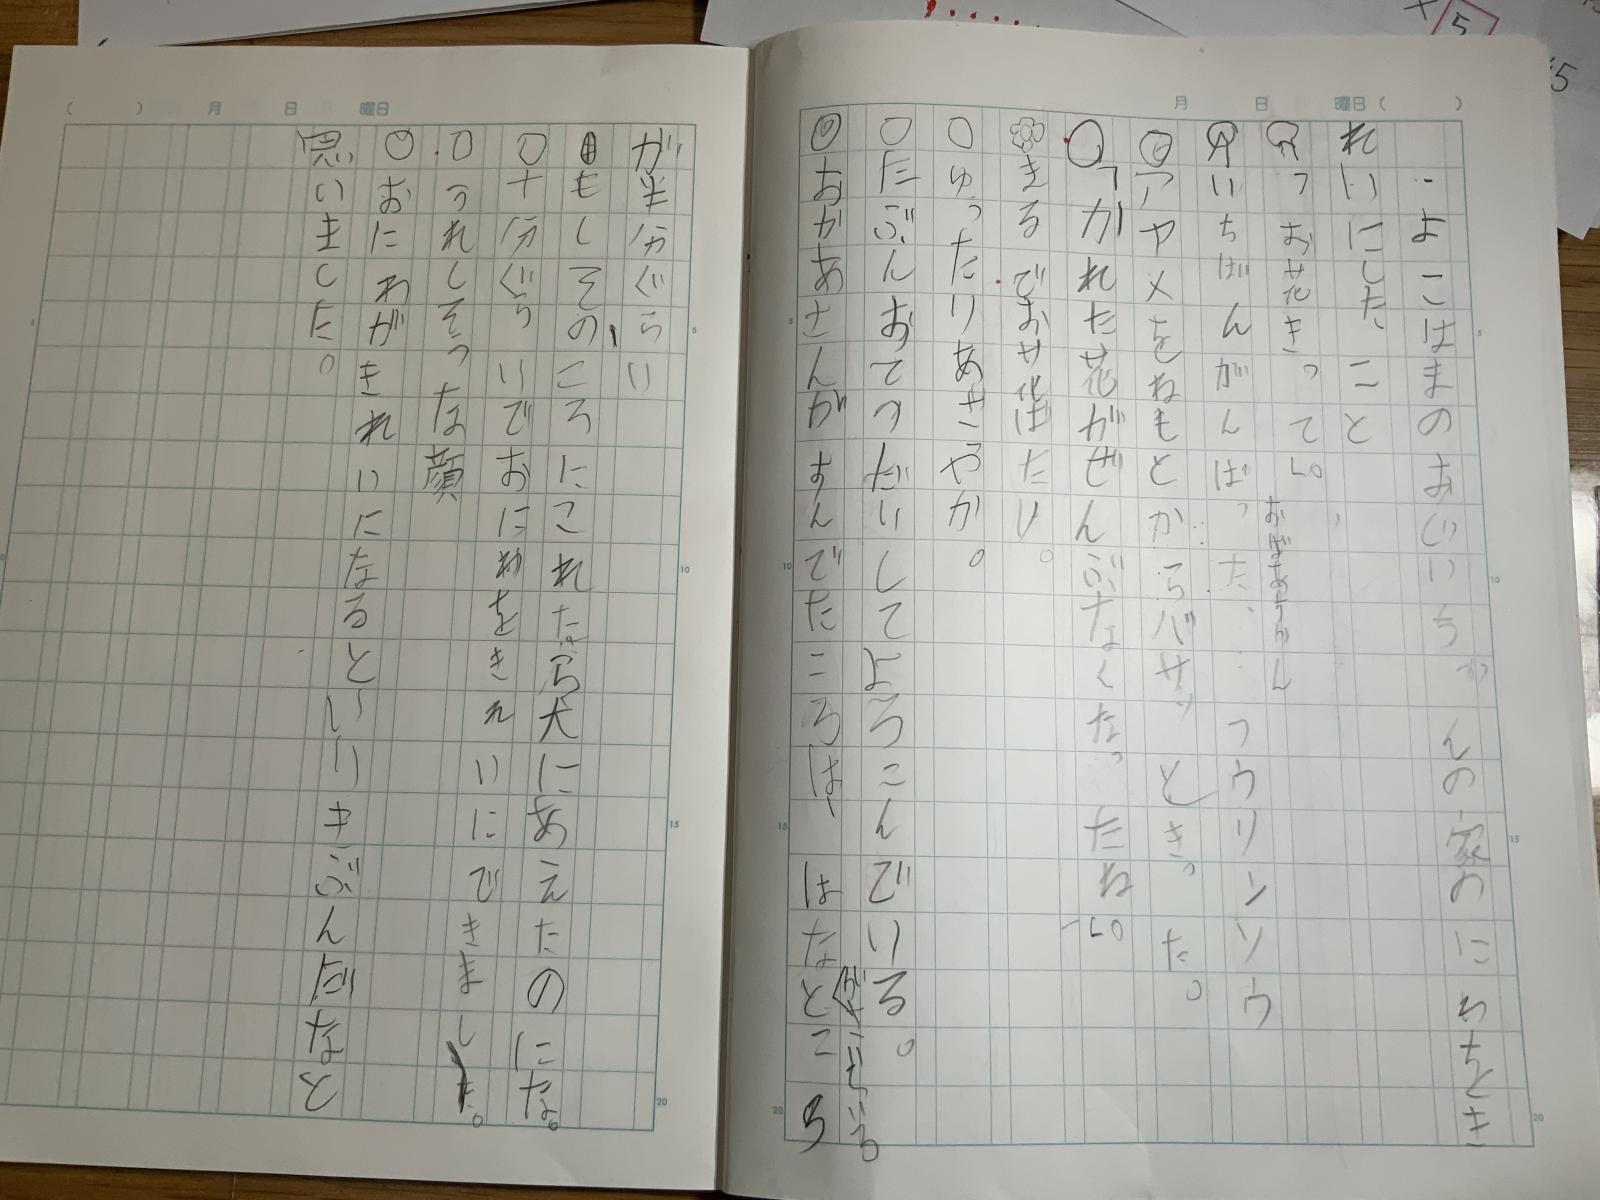 月 日 曜日( )
・よこはまのおじいちゃんの家のにわをとき
れいにした、こと
っお花きってし。
おばあちゃん
いちばんがんばった、
つウリンソウ
アヤメをねもとからバサッときった。
「かれた花がぜんぶなくなったね」。
きるでお花ばたけ。
ゅったりあさやか。
たぶんおてつだいしてよろこんでいる。
おかあさんがすんでたころは、はなとこ
ろ
( ) 月 日 曜日
が半分ぐらい
もしそのころにこれたら犬にあえたのにな。
十分ぐらいでおにわをきれいにできました。
うれしそうな顔
おにわがきれいになるといいきぶんだなと
思いました。
5
10
15
20
5
10
15
20
5